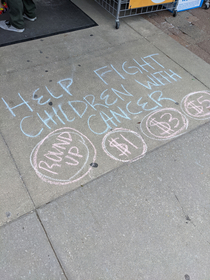 HELP FIGHT
CHILDREN WITH
CANCER
ROUND UP
$1
$3
$5